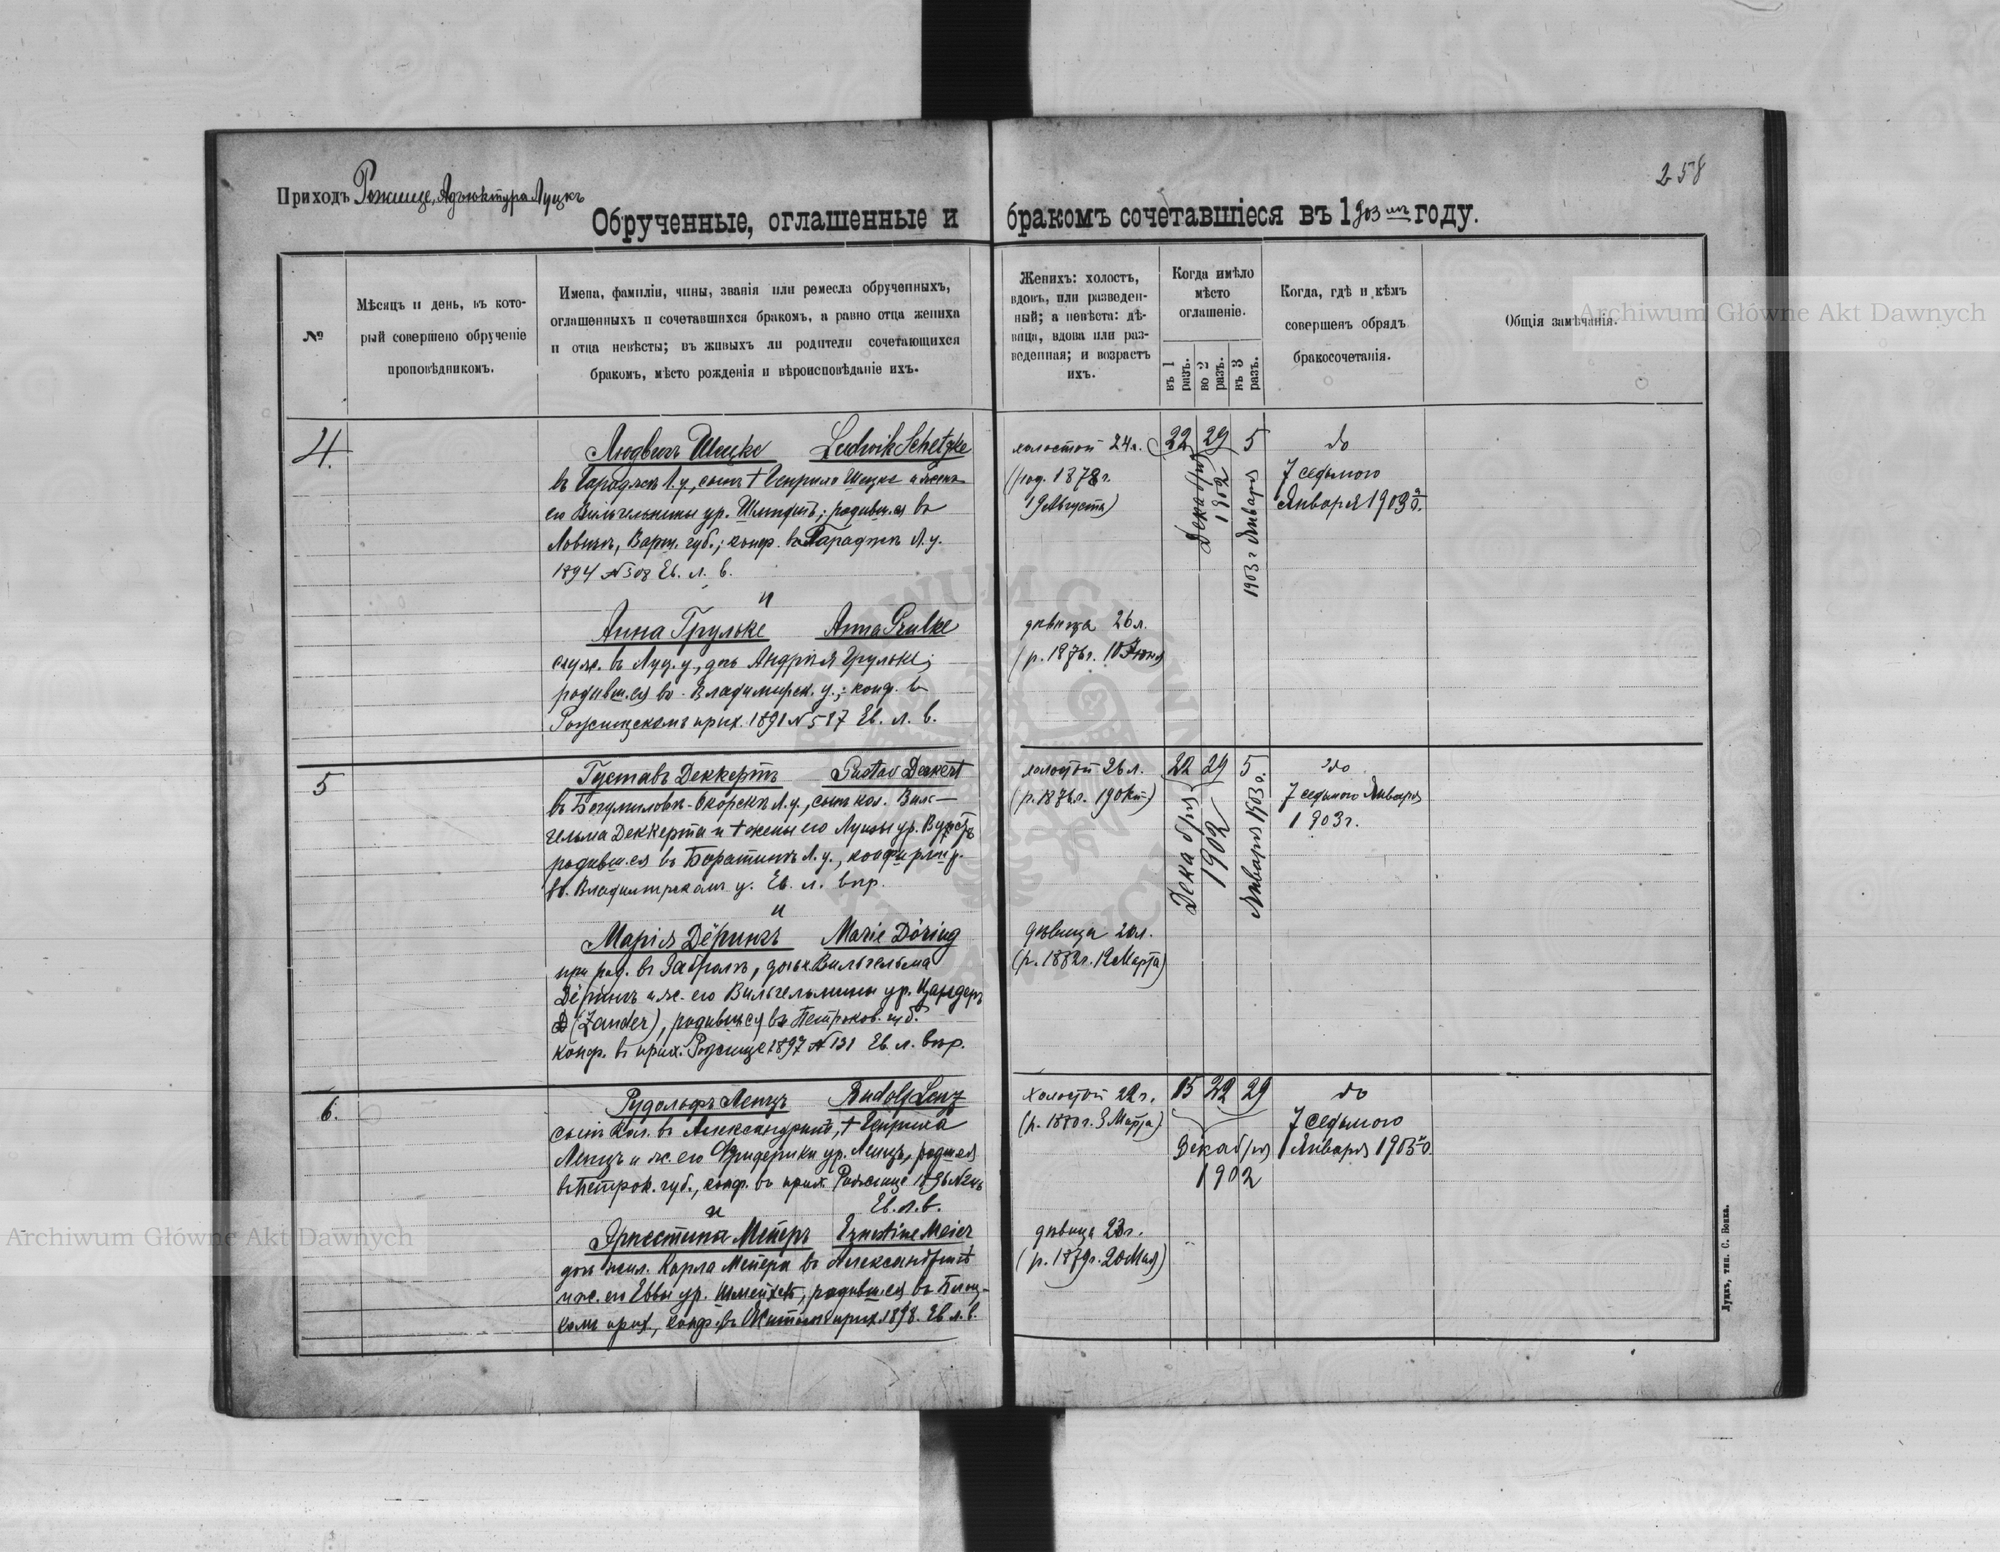 258
Приходъ Рожище, Адъюнктура Луцкъ
Обрученные, оглашенные и бракомъ сочетавшіеся въ 1903 мъ году.
№
Мѣсяцъ и день, въ кото-
рый совершено обрученіе
проповѣдникомъ.
Имена, фамиліи, чины, званія или ремесла обрученныхъ,
оглашенныхъ и сочетавшихся бракомъ, а равно отца жениха
и отца невѣсты; въ живыхъ ли родители сочетающихся
бракомъ, мѣсто рожденія и вѣроисповѣданіе ихъ.
Женихъ: холостъ,
вдовъ, или разведен-
ный; а невѣста: дѣ-
вица, вдова или раз-
веденная; и возрастъ
ихъ.
Когда имѣло
мѣсто
оглашеніе.
въ 1 разъ.
во 2 разъ.
въ 3 разъ.
Когда, гдѣ и кѣмъ
совершенъ обрядъ
бракосочетанія.
Общія замѣчанія.
4.
Людвигъ Шецке Ludwik Schetzke
сынъ † Генриха Шецке и жены
его Вильгельмины ур. Шмидтъ; родивш.ся въ
Ловичѣ, Варш. губ.; конф. въ Л. у.
1894 № 308 Ев. л. в.
и
Анна Грульке Anna Grulke
служ. въ Луц. у., дочь Андрея Грульке;
родивш.ся во Владимірск. у.; конф. въ
Рожищскомъ прих. 1891 № 587 Ев. л. в.
холостой 24 л.
(род. 1878 г.
9 Августа)
дѣвица 26 л.
(р. 1876 г. 10 Іюня
22 29 5
Декабря 1902
1903 г Января
до
7 седьмого
Января 1903 г.
5
Густавъ Деккертъ Gustav Deckert
въ Богумиловкѣ Л. у., сынъ кол. Виль-
гельма Деккерта и † жены его Луизы ур.
родивш.ся въ Боратинѣ Л. у., конфирм.
во Владимірскомъ у. Ев. л. вѣр.
и
Марія Дёрингъ Marie Döring
при род. въ , дочь Вильгельма
Дёрингъ и ж. его Вильгельмины ур. Цандеръ
(Zander), родивш.ся въ Петроков. губ.
конф. въ прих. Рожище 1897 № 131 Ев. л. вѣр.
холостой 26 л.
(р. 1876 г. 19 Окт.)
дѣвица 20 л.
(р. 1882 г. 12 Марта)
22 29 5
Декабря 1902
Января 1903 г.
до
7 седьмого Января
1903 г.
6.
Рудольфъ Ленцъ Rudolf Lenz
сынъ кол. въ Александрынѣ, † Генриха
Ленцъ и ж. его Фридерики ур. Ленцъ, родш.ся
въ Петрок. губ., конф. въ прих. Рожище 1896
Ев. л. в.
и
Эрнестина Мейеръ Ernestine Meier
дочь кол. Карла Мейера въ Александрынѣ
и ж. его Еввы ур. , родивш.ся въ
комъ прих., конф. въ прих. 1898. Ев. л. в.
холостой 22 г.
(р. 1880 г. 3 Марта)
дѣвица 23 г.
(р. 1879 г. 20 Мая)
15 22 29
Декабря
1902
до
7 седьмого
Января 1903 г.
Луцкъ, тип. С. Бонка.
Archiwum Główne Akt Dawnych
Archiwum Główne Akt Dawnych